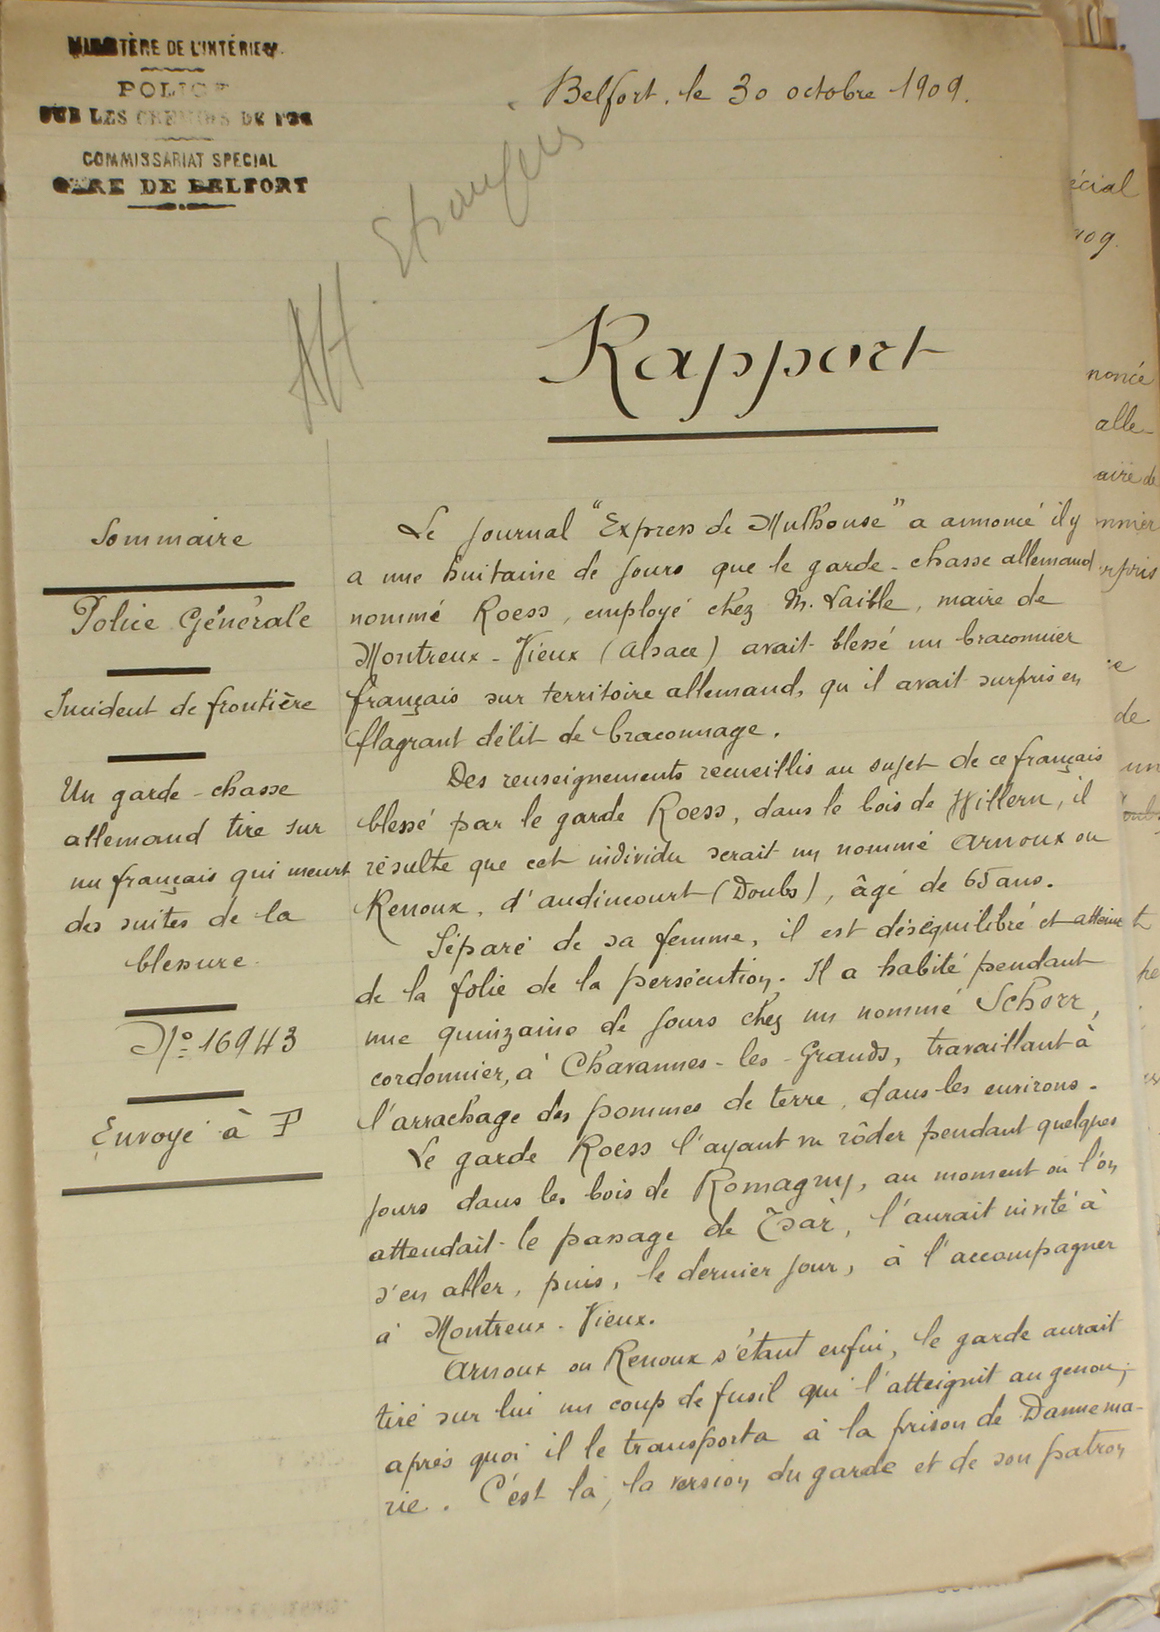 MINISTÈRE DE L'INTÉRIEUR
POLICE
SUR LES CHEMINS DE FER
COMMISSARIAT SPECIAL
GARE DE BELFORT
Belfort, le 30 octobre 1909.
Aff. Etrangers
Rapport
Sommaire
Police Générale
Incident de frontière
Un garde-chasse
allemand tire sur
un français qui meurt
des suites de la
blessure.
N° 16943
Envoyé à P
Le journal "Express de Mulhouse" a annoncé il y
a une huitaine de jours que le garde-chasse allemand
nommé Roess, employé chez M. Laible, maire de
Montreux-Vieux (Alsace) avait blessé un braconnier
français sur territoire allemand, qu'il avait surpris en
flagrant délit de braconnage.
Des renseignements recueillis au sujet de ce français
blessé par le garde Roess, dans le bois de Willern, il
résulte que cet individu serait un nommé Arnoux ou
Renoux, d'audincourt (Doubs), âgé de 65 ans.
Séparé de sa femme, il est déséquilibré et atteint
de la folie de la persécution. Il a habité pendant
une quinzaine de jours chez un nommé Schorr,
cordonnier, à Chavannes-les-Grands, travaillant à
l'arrachage des pommes de terre, dans les environs.
Le garde Roess l'ayant vu rôder pendant quelques
jours dans les bois de Romagny, au moment où l'on
attendait le passage de Tsar, l'aurait invité à
s'en aller, puis, le dernier jour, à l'accompagner
à Montreux-Vieux.
Arnoux ou Renoux s'étant enfui, le garde aurait
tiré sur lui un coup de fusil qui l'atteignit au genou;
après quoi il le transporta à la prison de Dannema-
rie. C'est là, la version du garde et de son patron
écial
909.
noncé
alle-
aire de
nnier
rpris
e
de
un
t
he